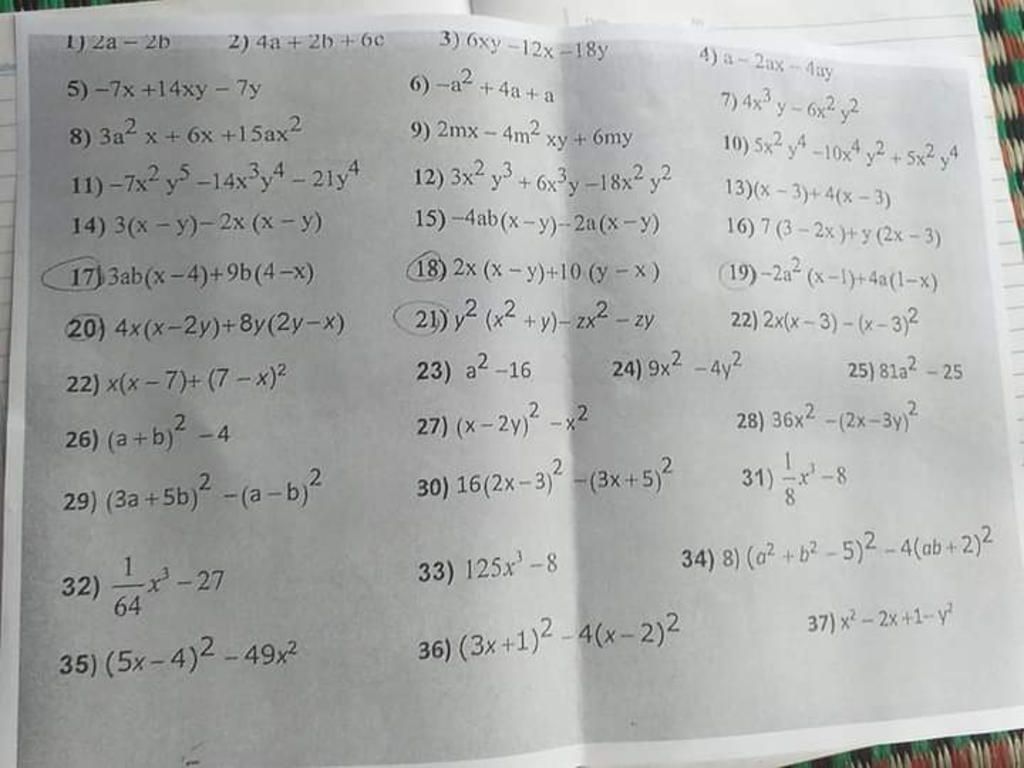 1) 2a − 2b 2) 4a + 2b + 6c 3) 6xy −12x −18y 4) a − 2ax − 4ay
5) −7x +14xy − 7y 6) −a² + 4a + a 7) 4x³ y − 6x² y²
8) 3a² x + 6x +15ax² 9) 2mx − 4m² xy + 6my 10) 5x² y⁴ −10x⁴ y² + 5x² y⁴
11) −7x² y⁵ −14x³y⁴ − 21y⁴ 12) 3x² y³ + 6x³y −18x² y² 13)(x − 3)+ 4(x − 3)
14) 3(x − y)− 2x (x − y) 15) −4ab(x − y)− 2a(x − y) 16) 7 (3 − 2x )+ y (2x − 3)
17) 3ab(x − 4)+9b(4 −x) 18) 2x (x − y)+10 (y − x ) 19) −2a² (x −1)+4a(1−x)
20) 4x(x−2y)+8y(2y−x) 21) y² (x² + y)− zx² − zy 22) 2x(x − 3) − (x − 3)²
22) x(x − 7)+ (7 − x)² 23) a² −16 24) 9x² − 4y² 25) 81a² − 25
26) (a + b)² − 4 27) (x − 2y)² − x² 28) 36x² −(2x−3y)²
29) (3a + 5b)² −(a − b)² 30) 16(2x−3)² −(3x+5)² 31) 1/8 x³ − 8
32) 1/64 x³ − 27 33) 125x³ − 8 34) 8) (a² + b² − 5)² − 4(ab + 2)²
35) (5x − 4)² − 49x² 36) (3x +1)² − 4(x − 2)² 37) x² − 2x +1− y²